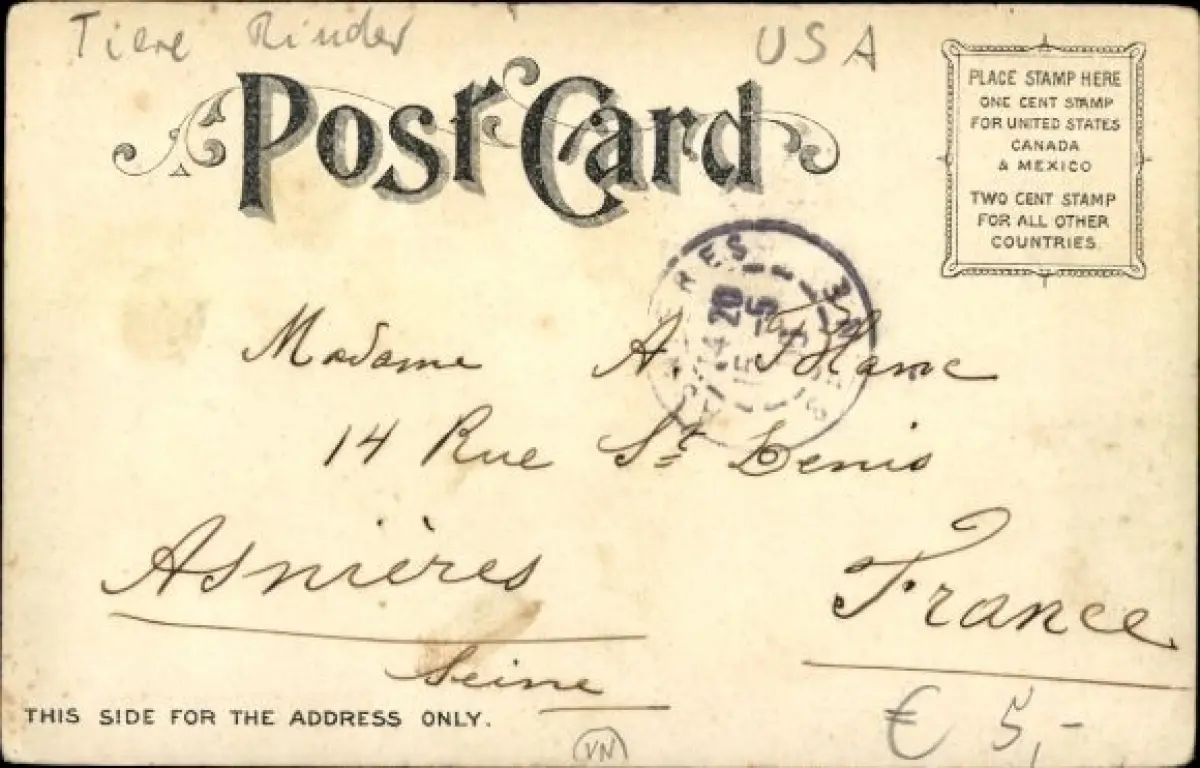 Tiere Rinder USA
Post Card
PLACE STAMP HERE
ONE CENT STAMP
FOR UNITED STATES
CANADA
& MEXICO
TWO CENT STAMP
FOR ALL OTHER
COUNTRIES
20
5
Madame A.
14 Rue St Denis
Asnières
France
Seine
THIS SIDE FOR THE ADDRESS ONLY.
€ 5,-
VN